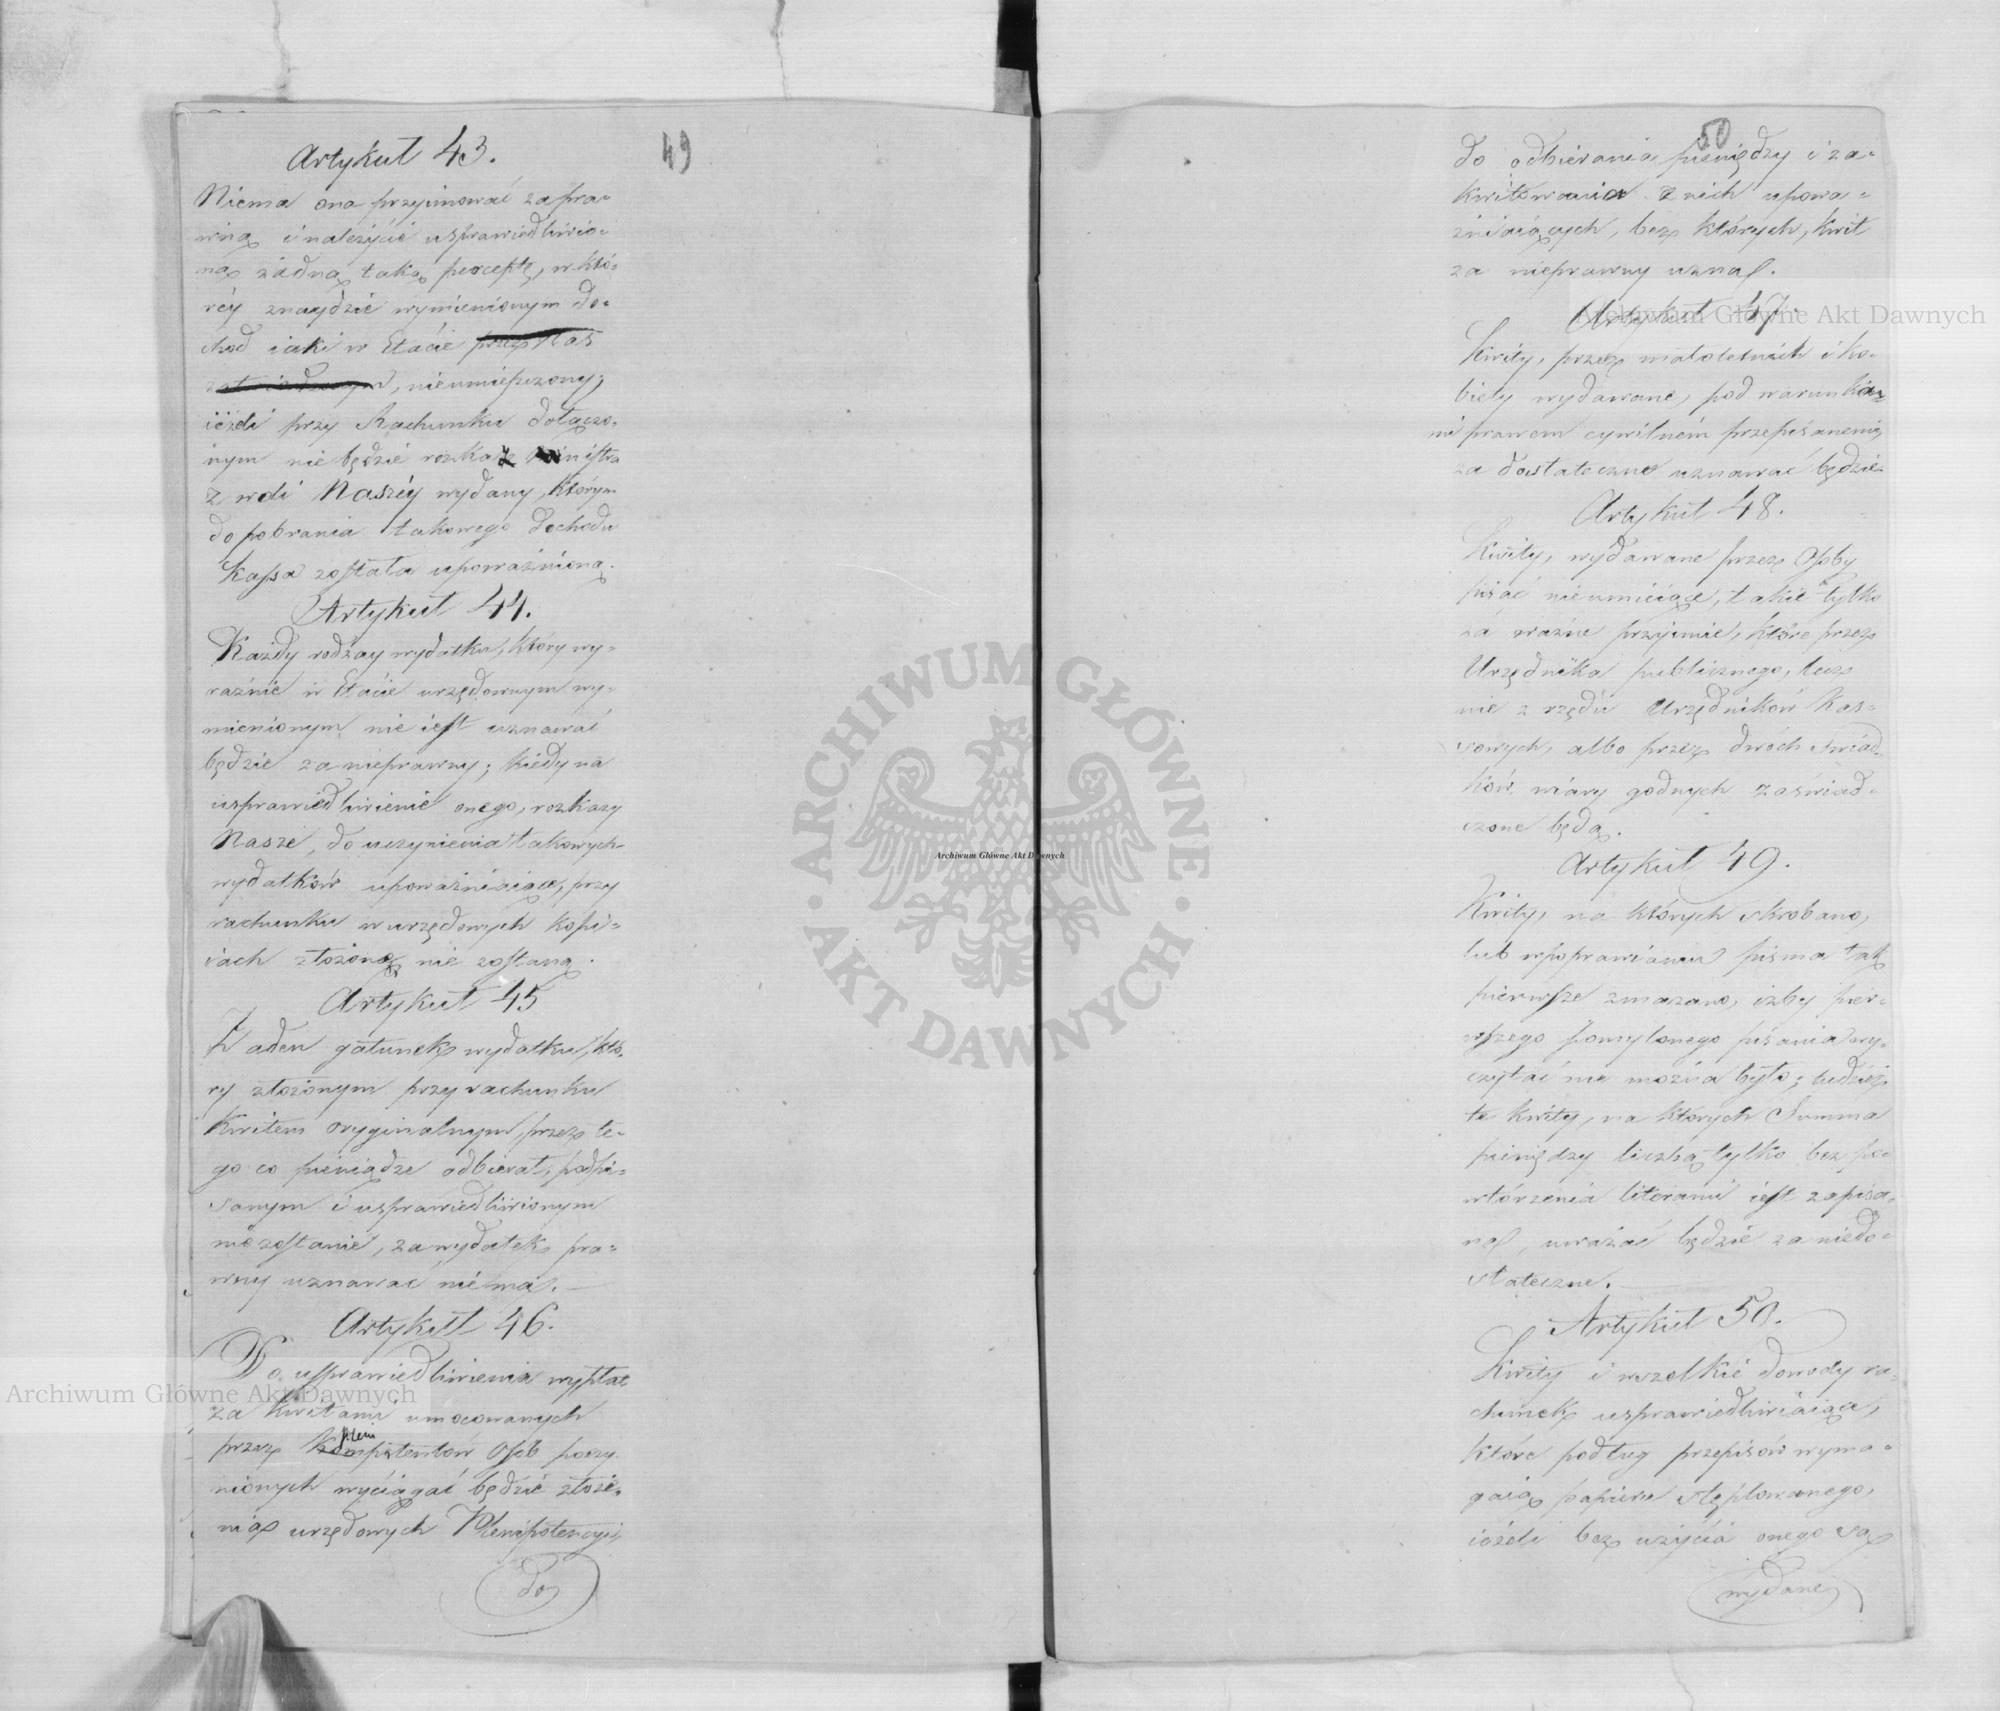 49
Artykuł 43.
Niema ona przyimować za pra-
wną i należycie usprawiedliwio-
ną żadną taką perceptę, w któ-
rey znaydzie wymienionym do-
chod iaki w Etacie przez Nas
zatwierdzonym, nieumieszczony;
ieżeli przy Rachunku dołączo-
nym nie będzie rozkaz Ministra
z woli Naszey wydany, którym
do pobrania takowego dochodu
Kassa została upoważnioną.
Artykuł 44.
Każdy rodzay wydatku, który wy-
raźnie w Etacie urzędownym wy-
mienionym nie iest uznawać
będzie za nieprawny; kiedy na
usprawiedliwienie onego, rozkazy
Nasze, do uczynienia takowych
wydatków upoważniaiące, przy
rachunku w urzędowych kopi-
iach złożone nie zostaną.
Artykuł 45
Żaden gatunek wydatku, któ-
ry złożonym przy rachunku
Kwitem oryginalnym, przez te-
go co pieniądze odbierał, podpi-
sanym i usprawiedliwionym
nie zostanie, za wydatek pra-
wny uznawać nie ma.
Artykuł 46.
Do usprawiedliwienia wypłat
za kwitami umocowanych
przez Kompetentów Osób poczy-
nionych wyciągać będzie złoże-
nia urzędowych Plenipotencyi,
do
50
do odbierania pieniędzy i za-
kwitowania z nich upowa-
żniaiących, bez których, kwit
za nieprawny uzna.
Artykuł 47.
Kwity, przez małoletnich i ko-
biety wydawane, pod warunka-
mi prawem cywilném przepisanemi,
za dostateczne uznawać będzie
Artykuł 48.
Kwity, wydawane przez Osoby
pisać nieumieiące, takie tylko
za ważne przyimie, które przez
Urzędnika publicznego, lecz
nie z rzędu Urzędników Kas-
sowych, albo przez dwóch świad-
ków wiary godnych zaświad-
czone będą.
Artykuł 49.
Kwity, na których skrobano,
lub w poprawianiu pisma tak
pierwsze zmazano, iżby pier-
wszego pomylonego pisania wy-
czytać nie można było; tudzież
te kwity, na których Summa
pieniędzy liczbą tylko bez po-
wtórzenia literami iest zapisa-
na, uważać będzie za niedo-
stateczne.
Artykuł 50.
Kwity i wszelkie dowody ra-
chunek usprawiedliwiaiące,
które podług przepisów wyma-
gaią papieru stęplowanego,
ieżeli bez użycia onego są
wydane
Archiwum Główne Akt Dawnych
Archiwum Główne Akt Dawnych
Archiwum Główne Akt Dawnych
ARCHIWUM GŁÓWNE
AKT DAWNYCH